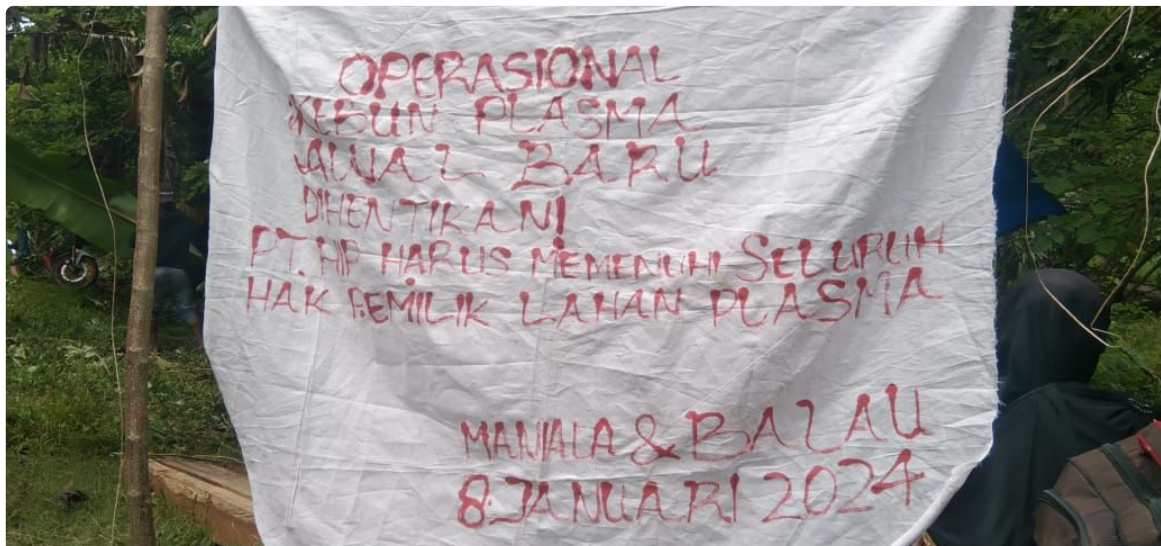 OPERASIONAL
KEBUN PLASMA
AWAL BARU
DIHENTIKAN!
PT. HIP HARUS MEMENUHI SELURUH
HAK PEMILIK LAHAN PLASMA
MANIALA & BALAU
8 JANUARI 2024